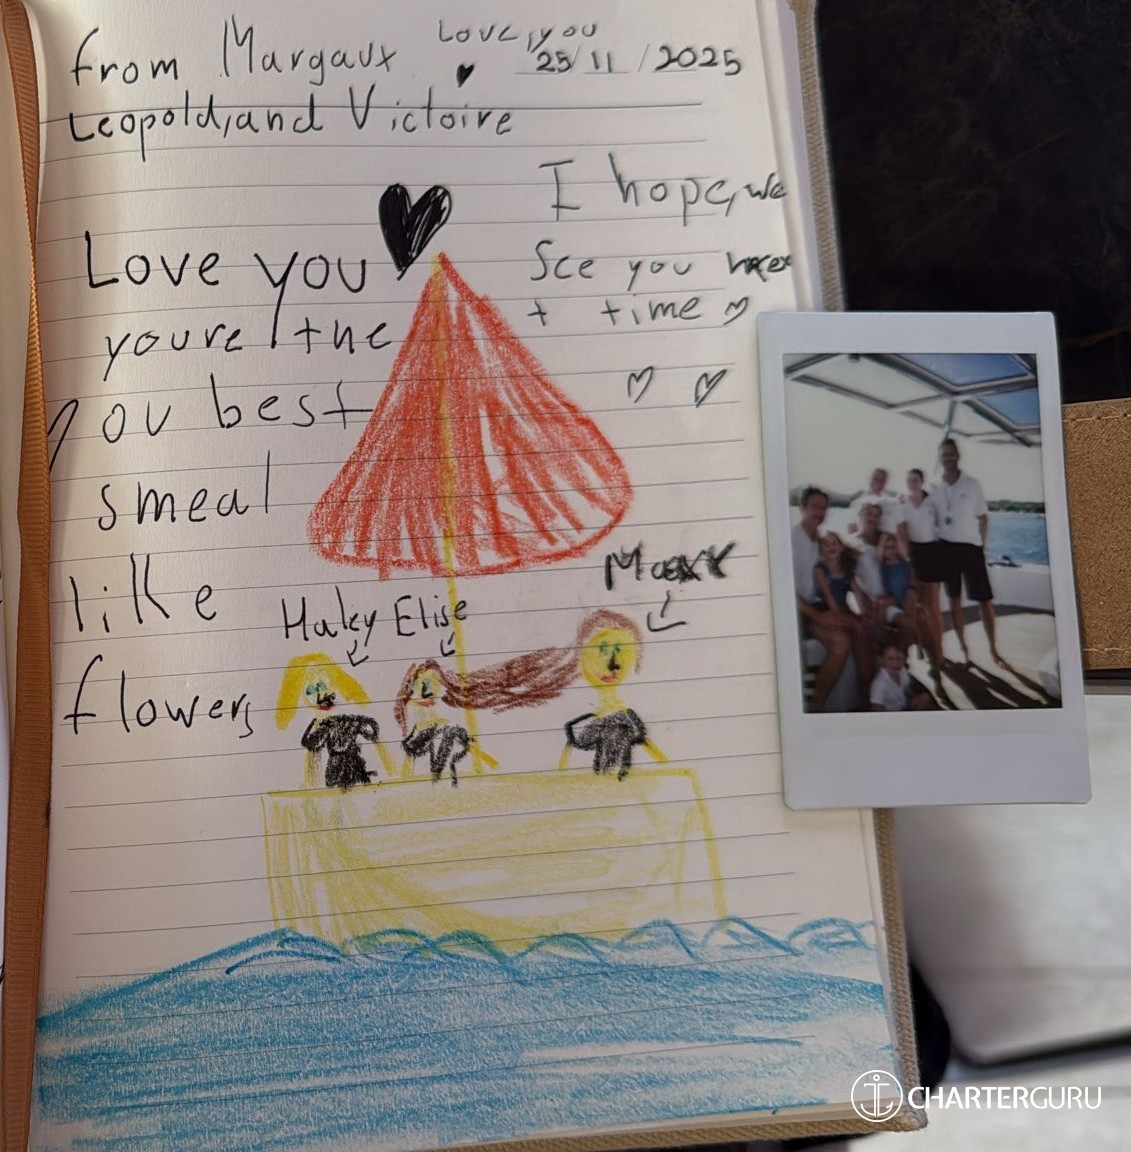 Love, you
from Margaux 25/11/2025
Leopold, and Victoire
I hope, we
See you nex
t time
Love you
youre the
you best
smeal
like
flowers
Haley Elise
CHARTERGURU